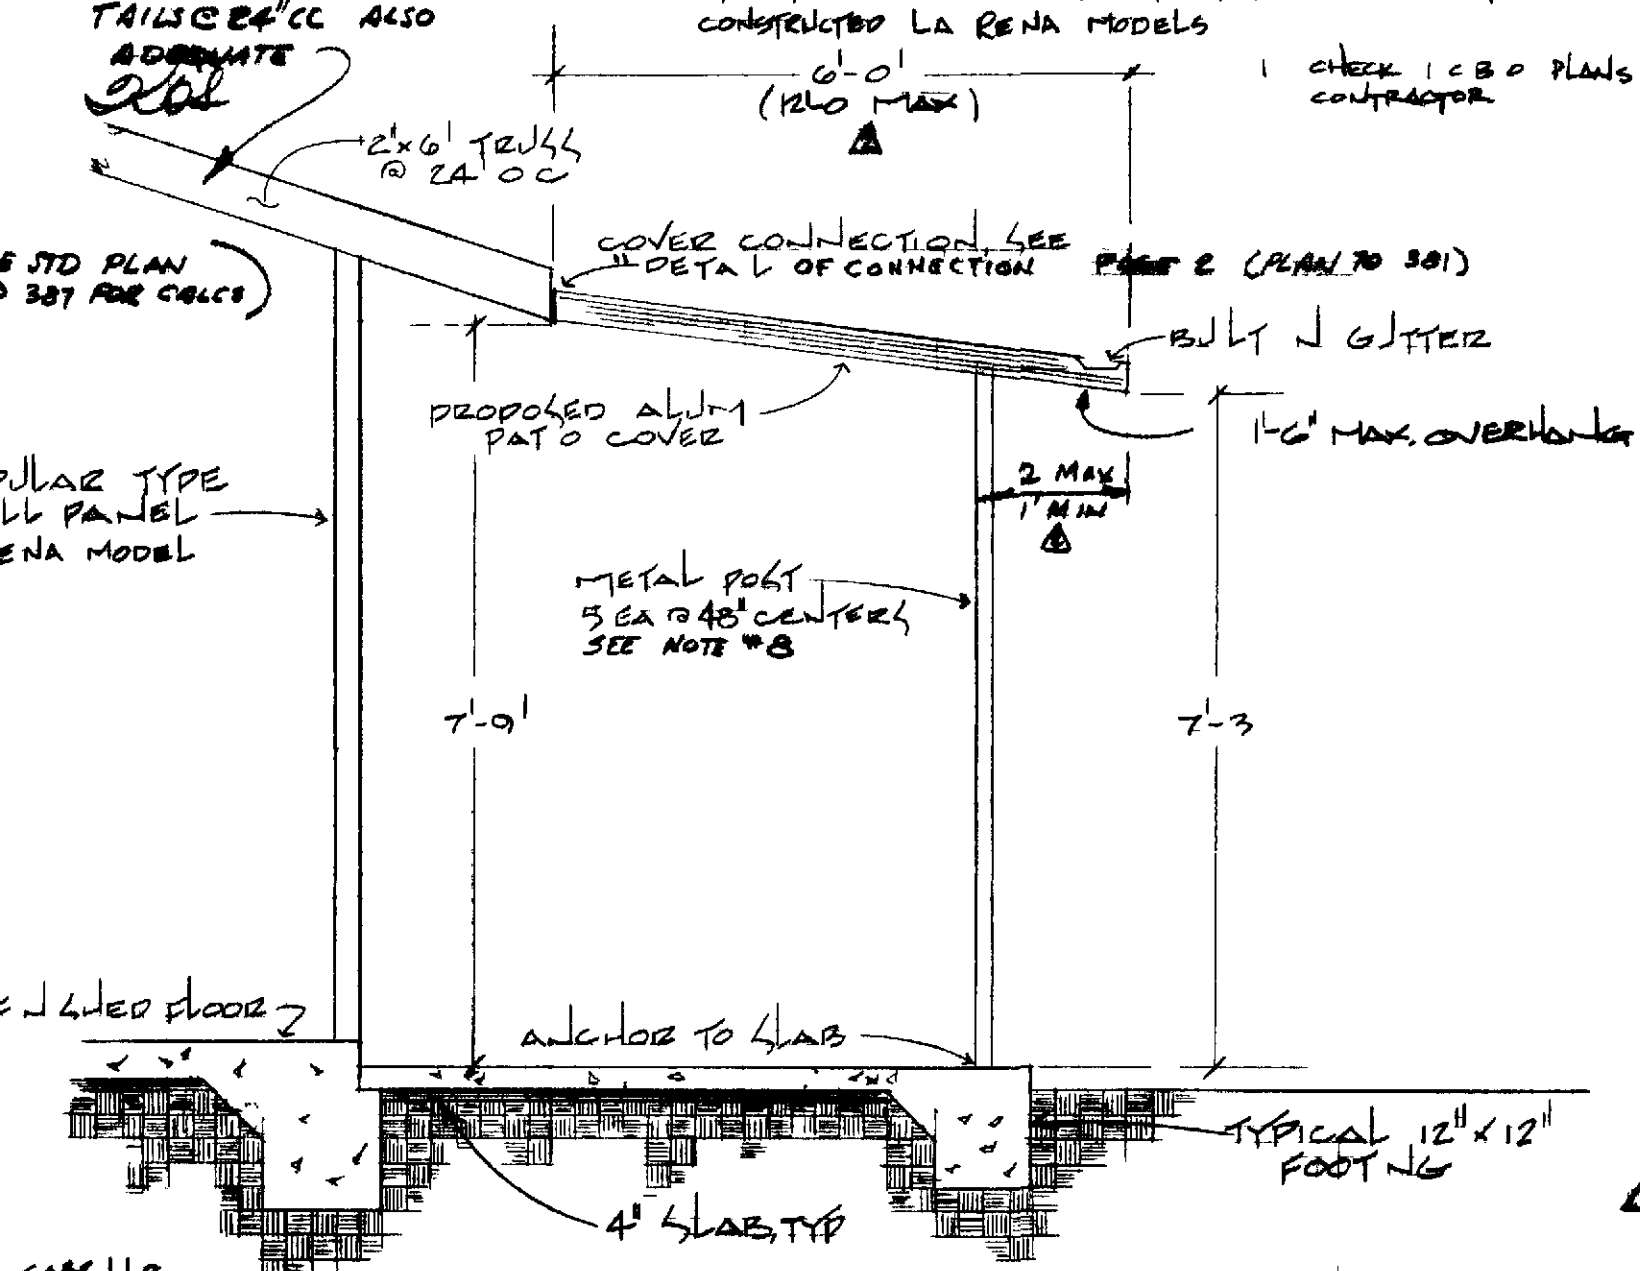 TAILS @ 24" CC ALSO
ADEQUATE
CONSTRUCTED LA RENA MODELS
6'-0'
(12'-0 MAX)
1 CHECK I C B O PLANS
CONTRACTOR
2"x6' TRUSS
@ 24' O C
COVER CONNECTION, SEE
"DETA L OF CONNECTION
2 (PLAN TO 381)
E STD PLAN
387 FOR CALCS)
BUILT N GUTTER
PROPOSED ALUM
PAT O COVER
1'-6" MAX. OVERHANG
2 MAX
1' MIN
PULAR TYPE
LL PANEL
ENA MODEL
METAL POST
5 EA @ 48" CENTERS
SEE NOTE #8
7'-9'
7'-3
N SHED FLOOR
ANCHOR TO SLAB
TYPICAL 12"x12"
FOOT NG
4" SLAB, TYP